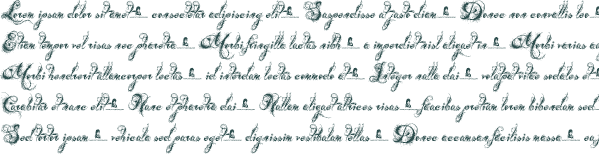 Lorem ipsum dolor sit amet consectetur adipiscing elit Suspendisse a justo diam Donec non convallis leo
Etiam tempor vel risus nec pharetra Morbi fringilla luctus nibh a imperdiet nisl aliquet in Morbi varius
Morbi hendrerit ullamcorper lectus id interdum lectus commodo et Integer nulla dui volutpat vitae sodales
Curabitur et nunc elit Nunc et pharetra dui Nullam aliquet ultrices risus faucibus pretium lorem bibendum sed
Sed tortor ipsum vehicula sed purus eget dignissim vestibulum tellus Donec accumsan facilisis massa